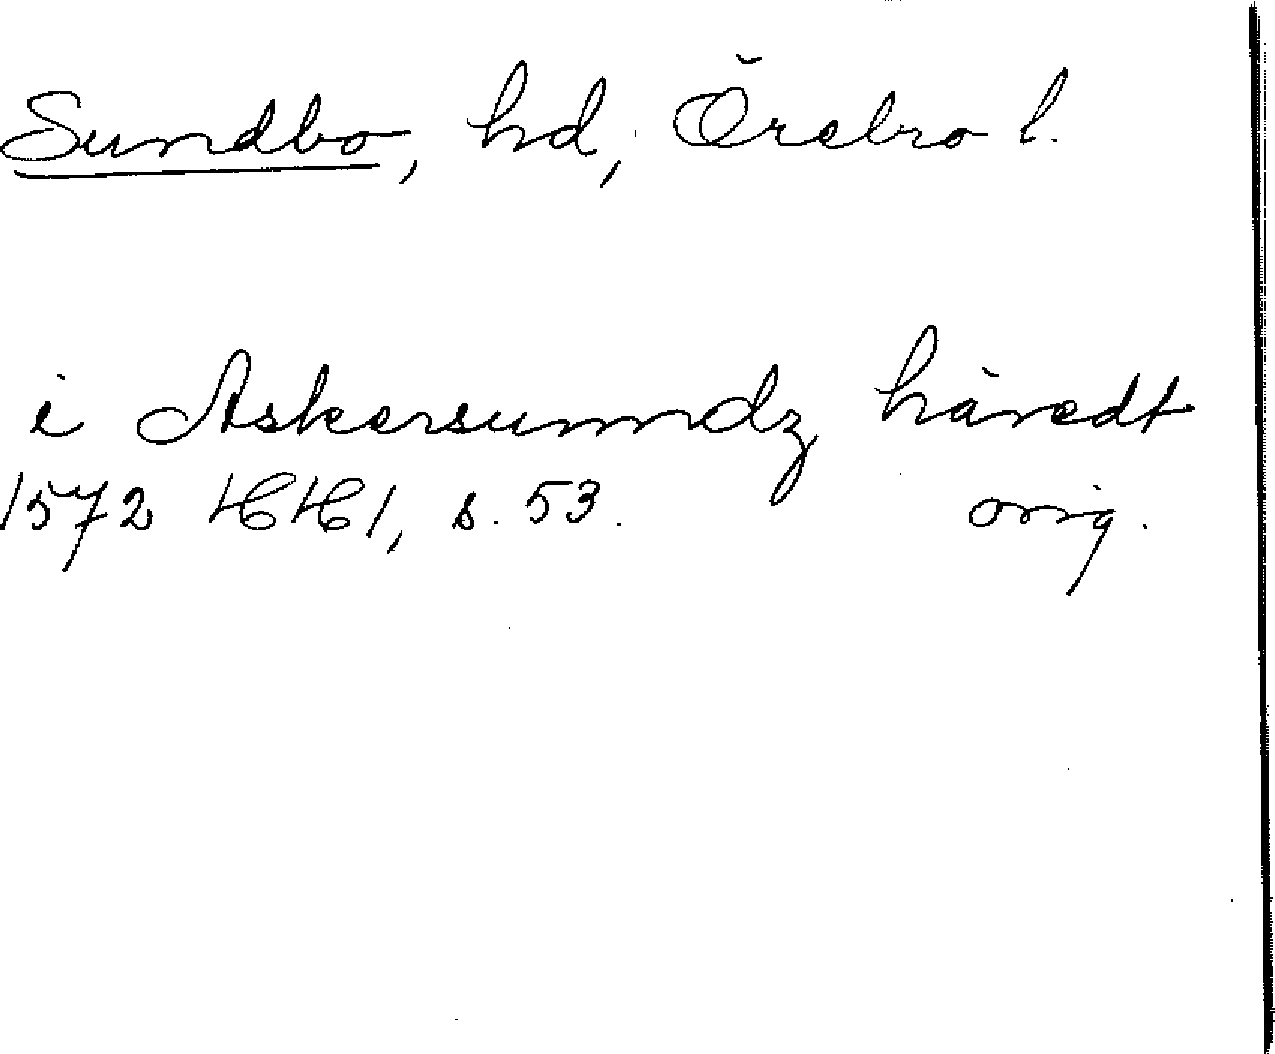 Sundbo, hd, Örebro l.
i Askersunndz häredt
1572 HH1, s. 53. orig.